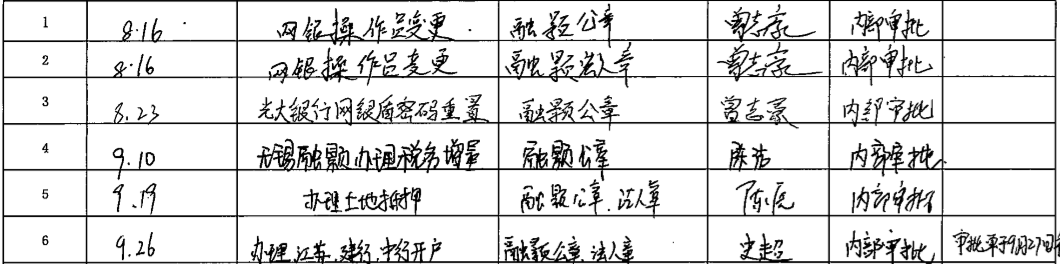 1 8.16 网银操作员变更. 融颢公章 曾志豪 内部审批
2 8.16 网银操作员变更 融颢法人章 曾志豪 内部审批
3 8.23 光大银行网银盾密码重置 融颢公章 曾志豪 内部审批
4 9.10 无锡融颢办理税务增量 融颢公章 陈浩 内部审批.
5 9.19 办理土地抵押 融颢公章、法人章 内部审批
6 9.26 办理江苏、建行、中行开户 融颢公章、法人章 史超 内部审批 审批单于9月27日